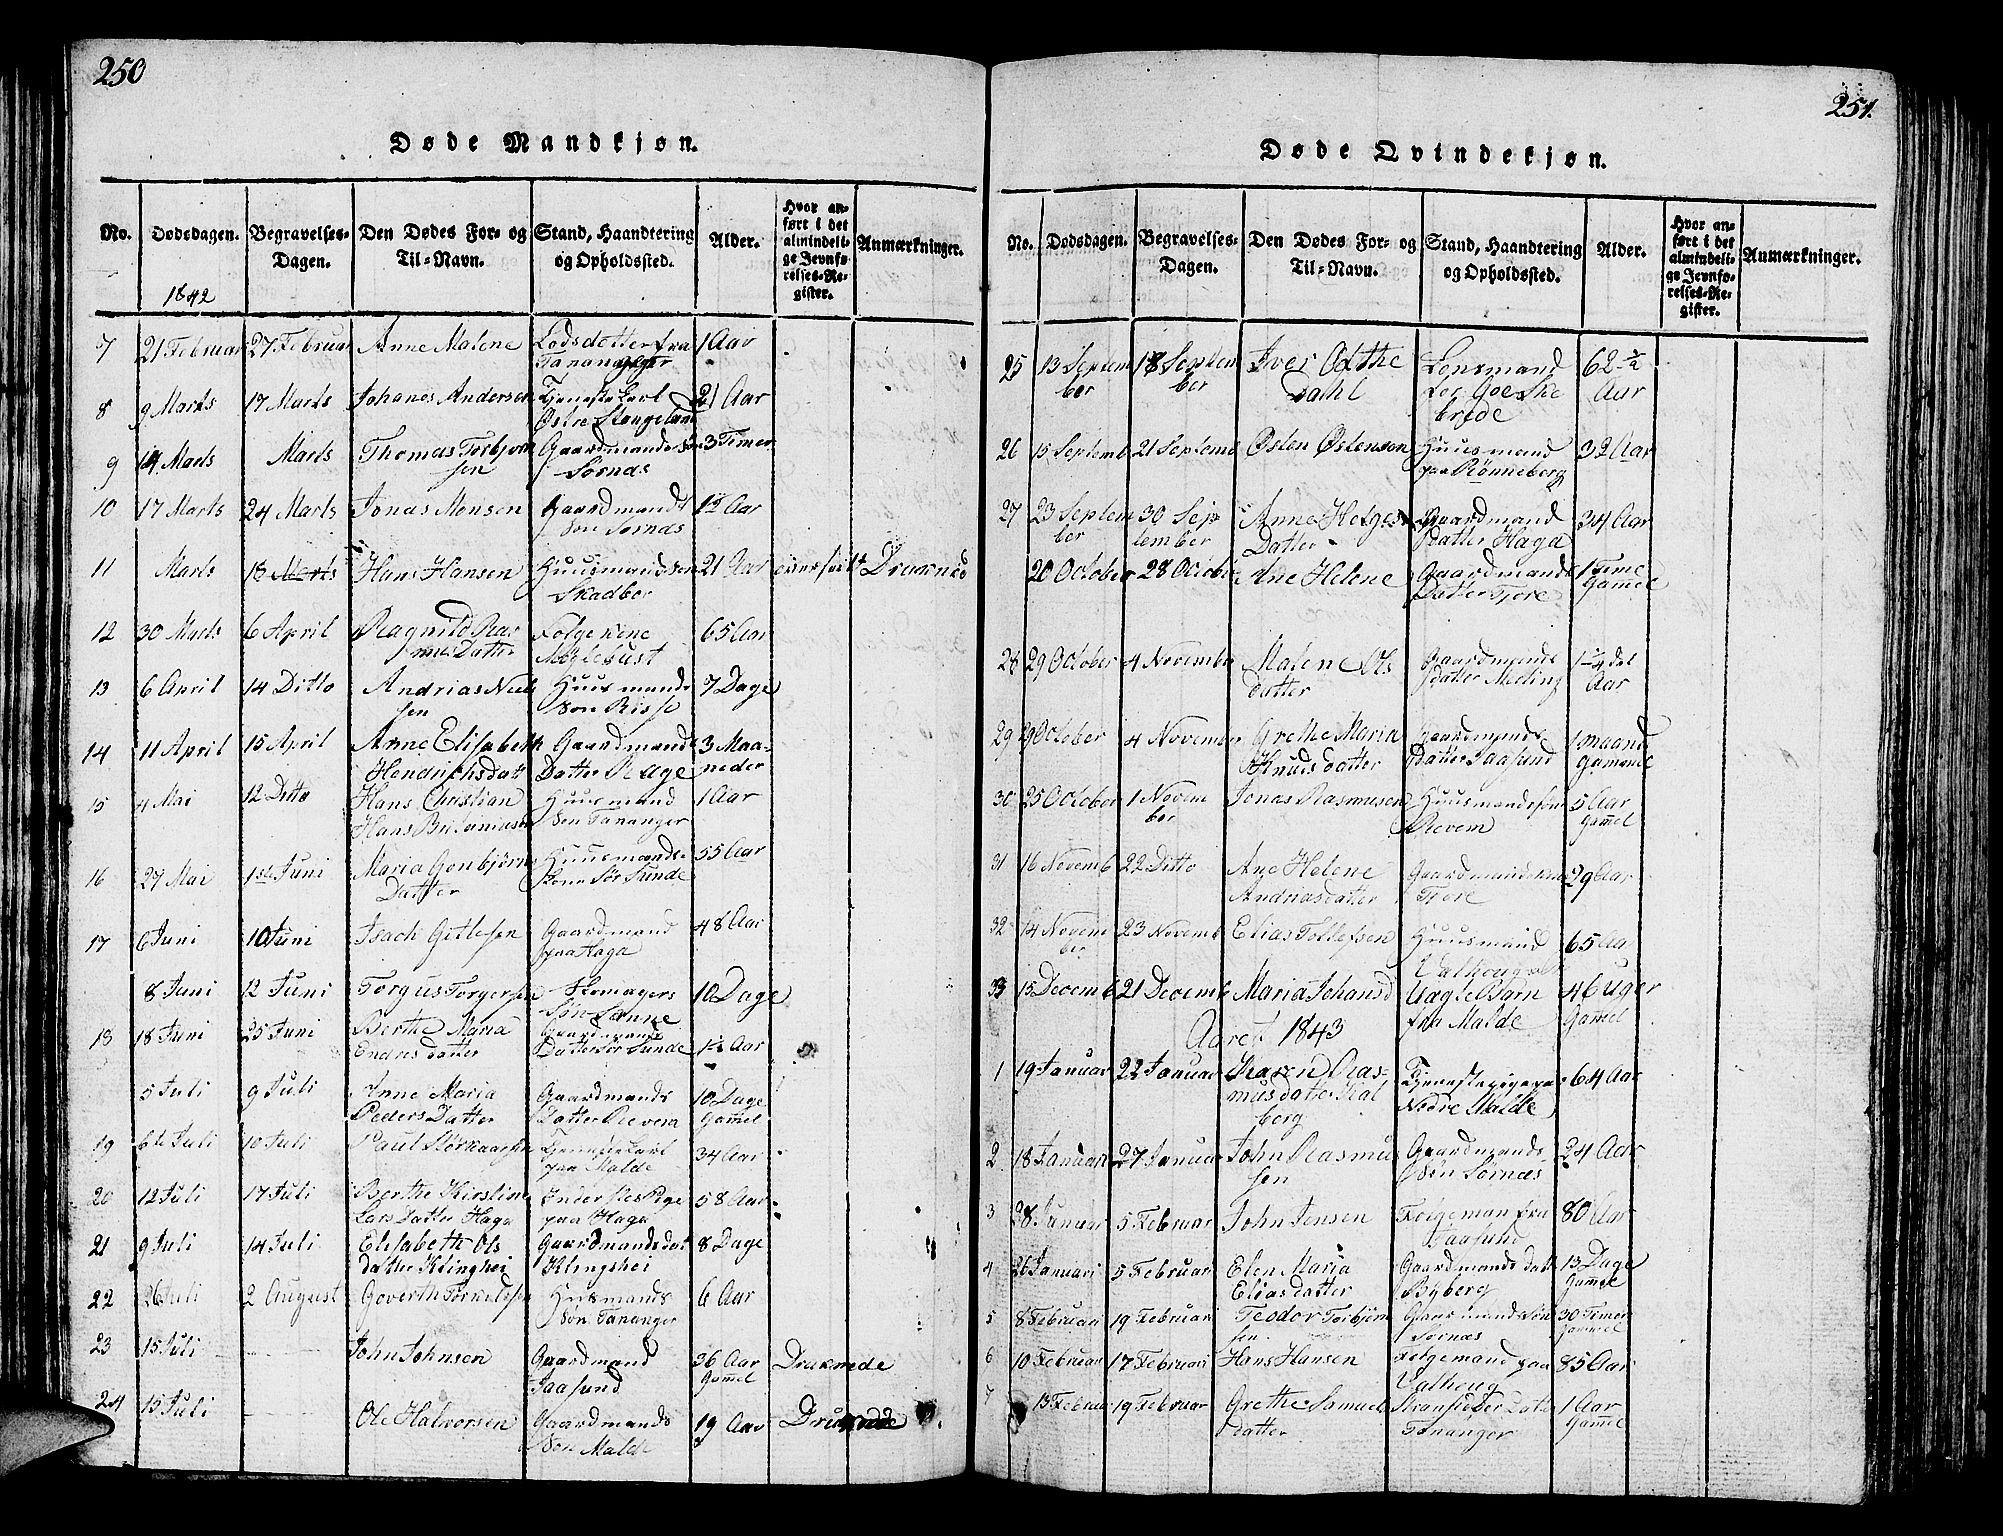 250
Døde Mandkjøn.
No. Dødsdagen. Begravelses-Dagen. Den Dødes For- og Til-Navn. Stand, Haandtering og Opholdssted. Alder. Hvor anført i det almindelige Jevnførelses-Register. Anmærkninger.
1842
7 21 Februar 27 Februar Anne Malene Lodsdatter fra 1 Aar
Tananger
8 9 Marts 17 Marts Johanes Andersen Tjenestekarl 21 Aar
Østre Stangeland
9 14 Marts Marts Thomas Torbjørn Gaardmandssøn 3 Timer
sen Sørnæs
10 17 Marts 24 Marts Jonas Monsen Gaardmands 1½ Aar
Søn Sørnas
11 Marts 18 Marts Hans Hansen Huusmandssøn 21 Aar Druknede
Skadber
12 30 Marts 6 April Ragnild Ras Følgekone 65 Aar
mus Datter Myglebust
13 6 April 14 Ditto Andrias Niel Huusmands 7 Dage
sen Søn Risse
14 11 April 15 April Anne Elisabeth Gaardmands 3 Maa-
Hendrichsdatt Datter Rege neder
15 4 Mai 12 Ditto Hans Christian Huusmand 1 Aar
Hans Britaniusen Søn Tananger
16 27 Mai 1ste Juni Maria Gonbjørns Huusmands- 55 Aar
Datter kone Sør Sunde
17 6 Juni 10 Juni Isach Gitlesen Gaardmand 48 Aar
paa Haga
8 Juni 12 Juni Torgus Torgersen Skomagers 10 Dage
Søn Sønne
18 18 Juni 25 Juni Berthe Maria Gaardmands
Endresdatter Datter Sør Sunde 1½ Aar
5 Juli 9 Juli Anne Maria Gaardmands 10 Dage
Peders Datter Datter Revem Gammel
19 6te Juli 10 Juli Paul Størkaarsen Tjenestekarl 34 Aar
paa Malde
20 12 Juli 17 Juli Berthe Kirstine Inderstes Pige 58 Aar
Lars Datter Haga paa Haga
21 9 Juli 14 Juli Elisabeth Ols Gaardmandsdat 8 Dage
datter Klinghei Klingshei
22 26 Juli 2 August Goverth Torkelsen Husmands 6 Aar
Søn Tananger
23 15 Juli John Johnsen Gaardmand 36 Aar Druknede
Jaasund Gammel
24 15 Juli Ole Halvorsen Gaardmands 19 Aar Druknede
Søn Malde
251.
Døde Qvindekjøn.
No. Dødsdagen. Begravelses-Dagen. Den Dødes For- og Til-Navn. Stand, Haandtering og Opholdssted. Alder. Hvor anført i det almindelige Jevnførelses-Register. Anmærkninger.
25 13 Septem 18 Septem Iver Ofthe Lensmand 62 ½
ber ber Dahl for Goeske Aar
brede
26 15 Septemb 21 Septemb Østen Østensen Huusmand 32 Aar
paa Rønneberg
27 23 Septem 30 Sep Anne Helges Gaardmand 34 Aar
ber tember Datter Datter Haga
20 October 28 October Ane Helene Gaardmands 1 Time
Datter Tjore Gamel
28 29 October 4 November Malene Ols Gaardmands 1¼ del
datter datter Meling Aar
29 29 October 4 November Grethe Maria Gaardmands 1 maand
Knudsdatter Datter Jaasund Gammel
30 25 October 1 Novem Jonas Rasmusen Huusmandssøn 5 Aar
ber Revem Gamel
31 16 Novemb 22 Ditto Ane Helene Gaardmandskone 29 Aar
Andriasdatter Tjore
32 14 Novem 23 Novemb Elias Tollefsen Huusmand 65 Aar
ber Valhoug
33 15 Decemb 21 Decemb Maria Johansd Uægte Barn 46 Uger
fra Malde Gamel
Aaret 1843
1 19 Januar 22 Januar Karen Ras- Tjenestepige paa 64 Aar
musdatter Kal Nedre Malde
berg
2 18 Januari 27 Januar John Rasmu Gaardmands 24 Aar
sen Søn Sørnæs
3 28 Januar 5 Februar John Jensen Følgeman fra 80 Aar
Jaasund
4 26 Januari 5 Februar Elen Maria Gaardmands dat 13 Dage
Eliasdatter Byberg Gamel
5 8 Februari 19 Februari Teodor Torbjørn Gaardmands Søn 30 Timer
sen Sørnæs Gammel
6 10 Februar 17 Februari Hans Hansen Følgemand paa 85 Aar
Valhoug
7 13 Februar 19 Februar Grethe Samuel Strandsider Datter 1 Aar
datter Tananger Gammel